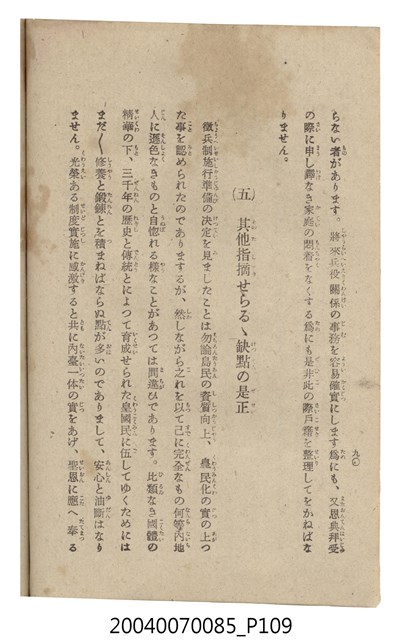 九〇
らない者があります。將來兵役關係の事務を容易確實にします爲にも、又恩典拜受
の際に申し譯なき家庭の悶着をなくする爲にも是非此の際戶籍を整理してをかねばな
りません。
(五) 其他指摘せらるゝ缺點の是正
徵兵制施行準備の決定を見ましたことは勿論島民の資質向上、皇民化の實の上つ
た事を認められたのでありますが、然しながら之れを以て已に完全なもの何等內地
人に遜色なきものと自惚れる樣なことがあつては間違ひであります。比類なき國體の
精華の下、三千年の歷史と傳統とによつて育成せられた皇國民に伍してゆくためには
まだ〱修養と鍛鍊とを積まねばならぬ點が多いのでありまして、安心と油斷はなり
ません。光榮ある制度實施に感激すると共に內臺一体の實をあげ、聖恩に應へ奉る
20040070085_P109